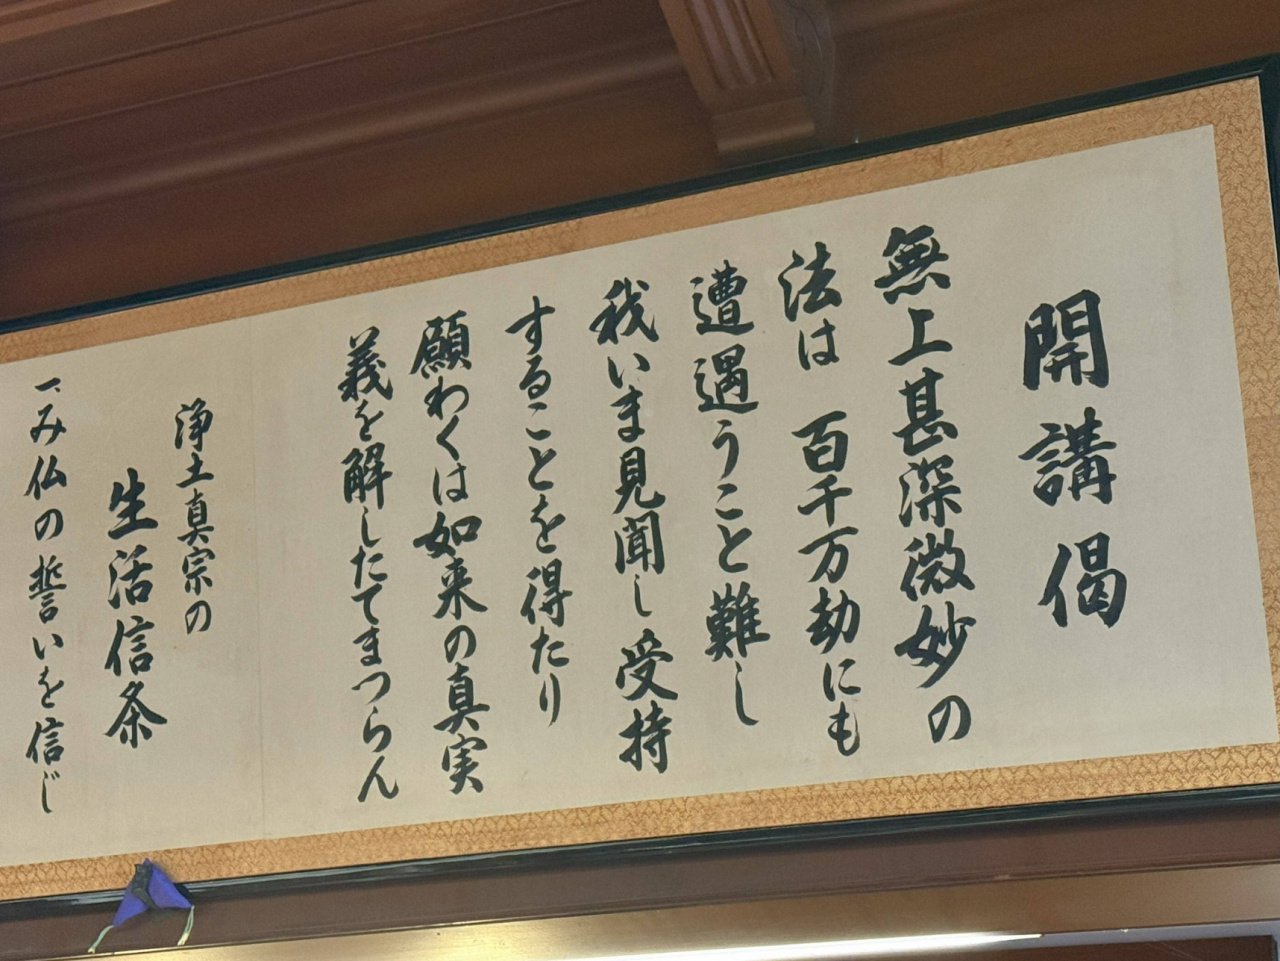 開講偈
無上甚深微妙の
法は 百千万劫にも
遭遇うこと難し
我いま見聞し 受持
することを得たり
願わくは如来の真実
義を解したてまつらん
浄土真宗の
生活信条
一、み仏の誓いを信じ